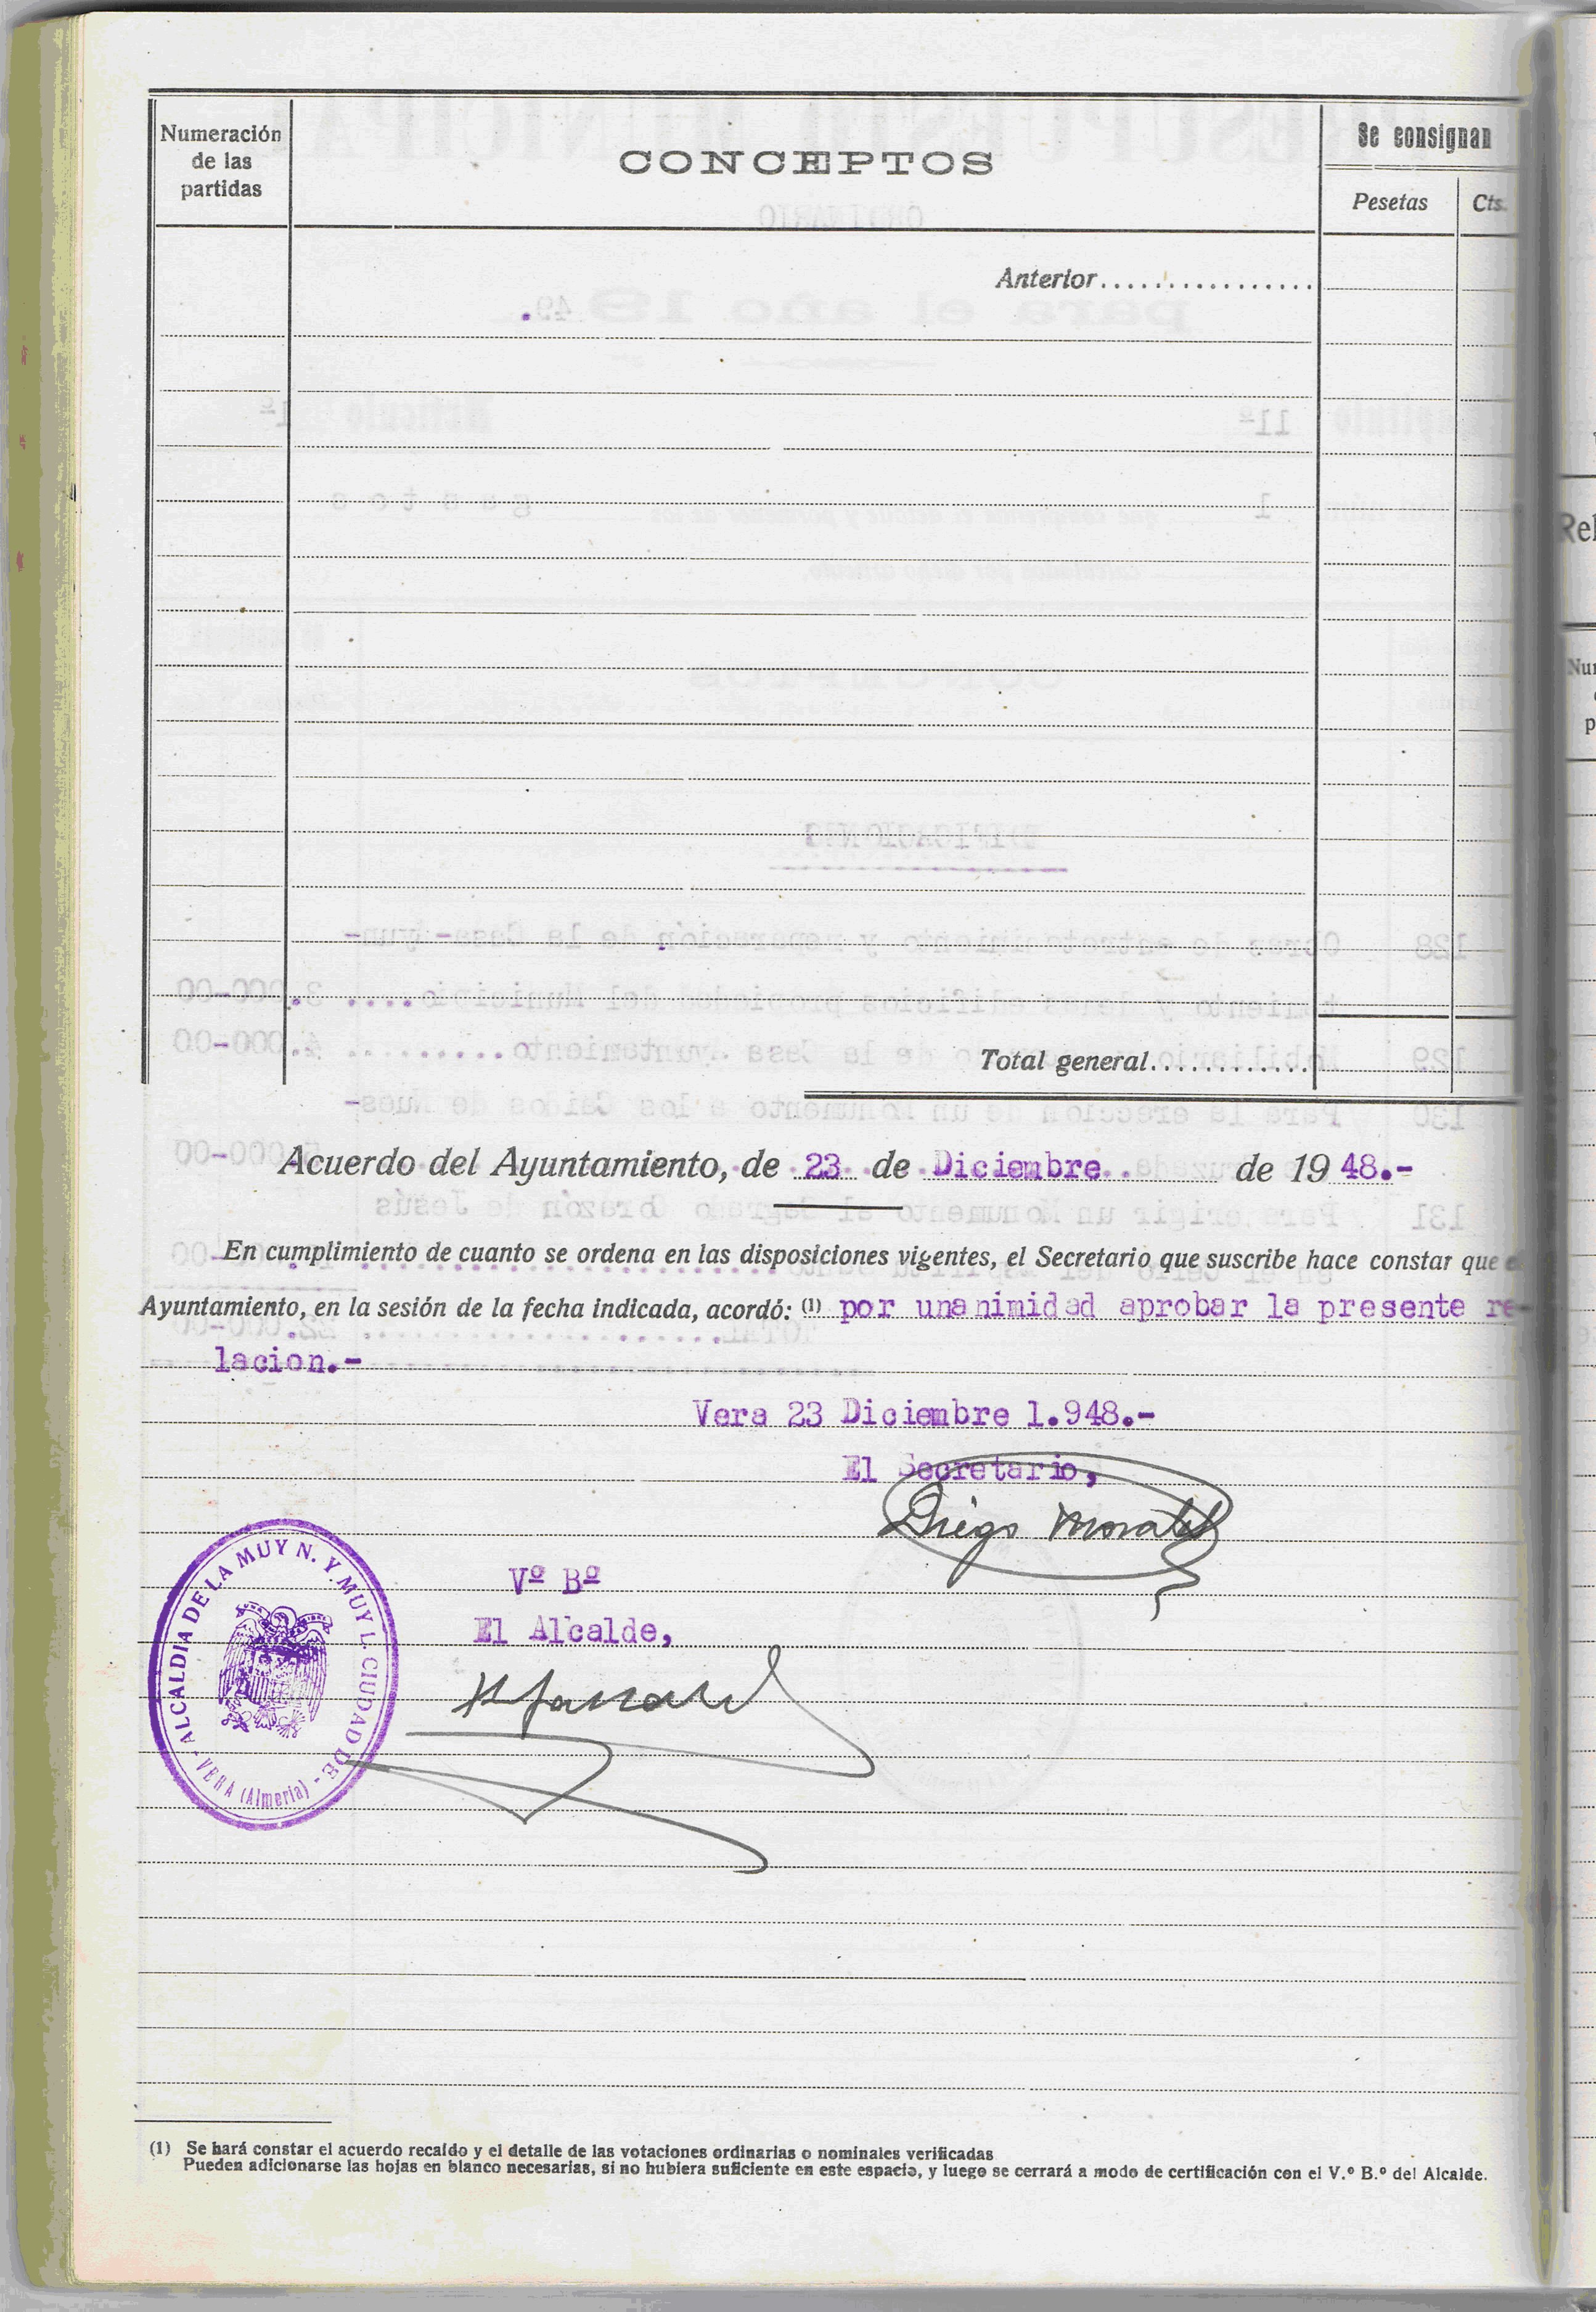 Numeración
de las
partidas
CONCEPTOS
Se consignan
Pesetas
Cts.
Anterior.................
Total general.............
Acuerdo del Ayuntamiento, de 23 de Diciembre.. de 19 48.-
En cumplimiento de cuanto se ordena en las disposiciones vigentes, el Secretario que suscribe hace constar que
Ayuntamiento, en la sesión de la fecha indicada, acordó: (1) por unanimidad aprobar la presente re-
lacion.-
Vera 23 Diciembre 1.948.-
El Secretario,
Diego Morales
Vº Bº
El Alcalde,
ALCALDIA DE LA MUY N. Y MUY L. CIUDAD DE
- VERA (Almería) -
(1) Se hará constar el acuerdo recaído y el detalle de las votaciones ordinarias o nominales verificadas
Pueden adicionarse las hojas en blanco necesarias, si no hubiera suficiente en este espacio, y luego se cerrará a modo de certificación con el V.º B.º del Alcalde.